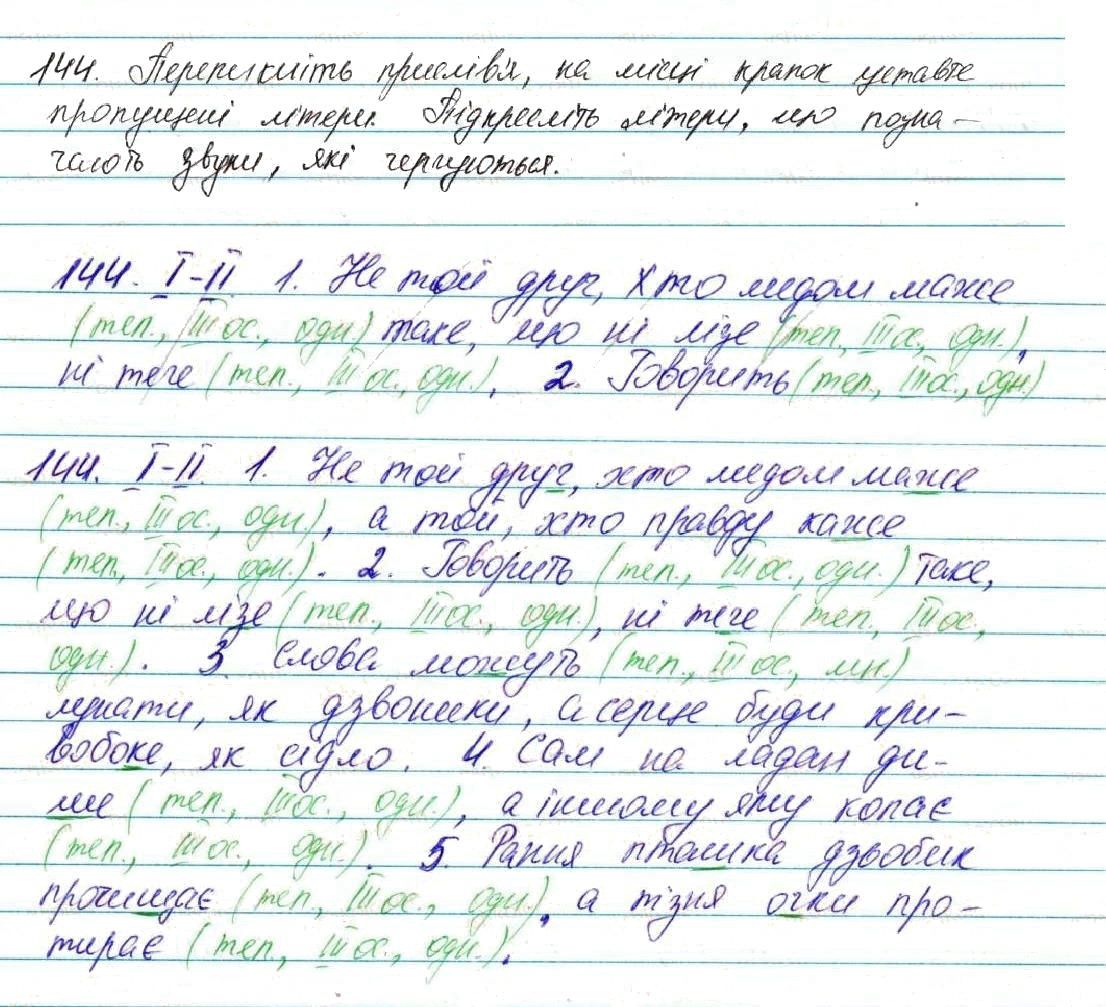 144. Перепишіть прислів'я, на місці крапок уставте
пропущені літери. Підкресліть літери, що позна-
чають звуки, які чергуються.
144. I-II 1. Не той друг, хто медом маже
(теп., III ос., одн.) таке, що ні лізе (теп., III ос., одн.),
ні тече (теп., III ос., одн.), 2. Говорить (теп., III ос., одн.)
144. I-II. 1. Не той друг, хто медом маже
(теп., III ос., одн.), а той, хто правду каже
(теп., III ос., одн.). 2. Говорить (теп., III ос., одн.) таке,
що ні лізе (теп., III ос., одн.), ні тече (теп., III ос.,
одн.). 3. Слова можуть (теп., III ос., мн.)
лунати, як дзвоники, а серце буди кри-
вобоке, як сідло. 4. Сам на ладан ди-
ше (теп., III ос., одн.), а іншому яму копає
(теп., III ос., одн.). 5. Рання пташка дзьобик
прочищає (теп., III ос., одн.), а пізня очки про-
тирає (теп., III ос., одн.).